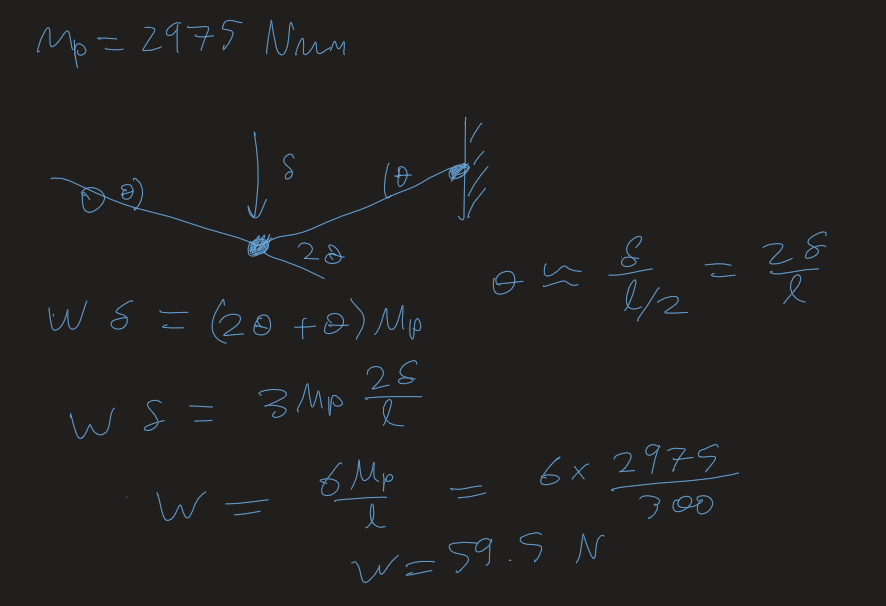 Mp = 2975 Nmm
δ
θ
θ
2θ
θ ≃ δ/(l/2) = 2δ/l
W δ = (2θ + θ) Mp
W δ = 3Mp 2δ/l
W = 6Mp/l = 6 × 2975/300
W = 59.5 N